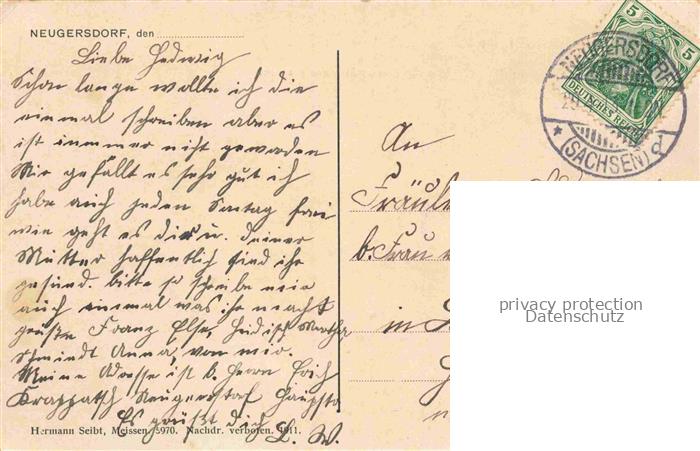 NEUGERSDORF, den
Liebe Hedwig
Schon lange wollte ich die
einmal schreiben aber es
ist immer nicht geworden
Mir gefällt es sehr gut ich
habe auch jeden Sontag frei
wie geht es dir u. deiner
Mutter hoffentlich sind ihr
gesund. bitte so schreibe mir
auch einmal was ihr macht
grüße Franz Else, Martha
Schmidt Anna, von mir.
Meine Adresse ist b. Herrn Erich
Neugersdorf Hauptst
Es grüßt dich L. W.
Hermann Seibt, Meissen 5970. Nachdr. verboten. 1911.
5
5
DEUTSCHES REICH
NEUGERSDORF
* (SACHSEN) d
An
Fräulein
b. Frau
in
privacy protection
Datenschutz